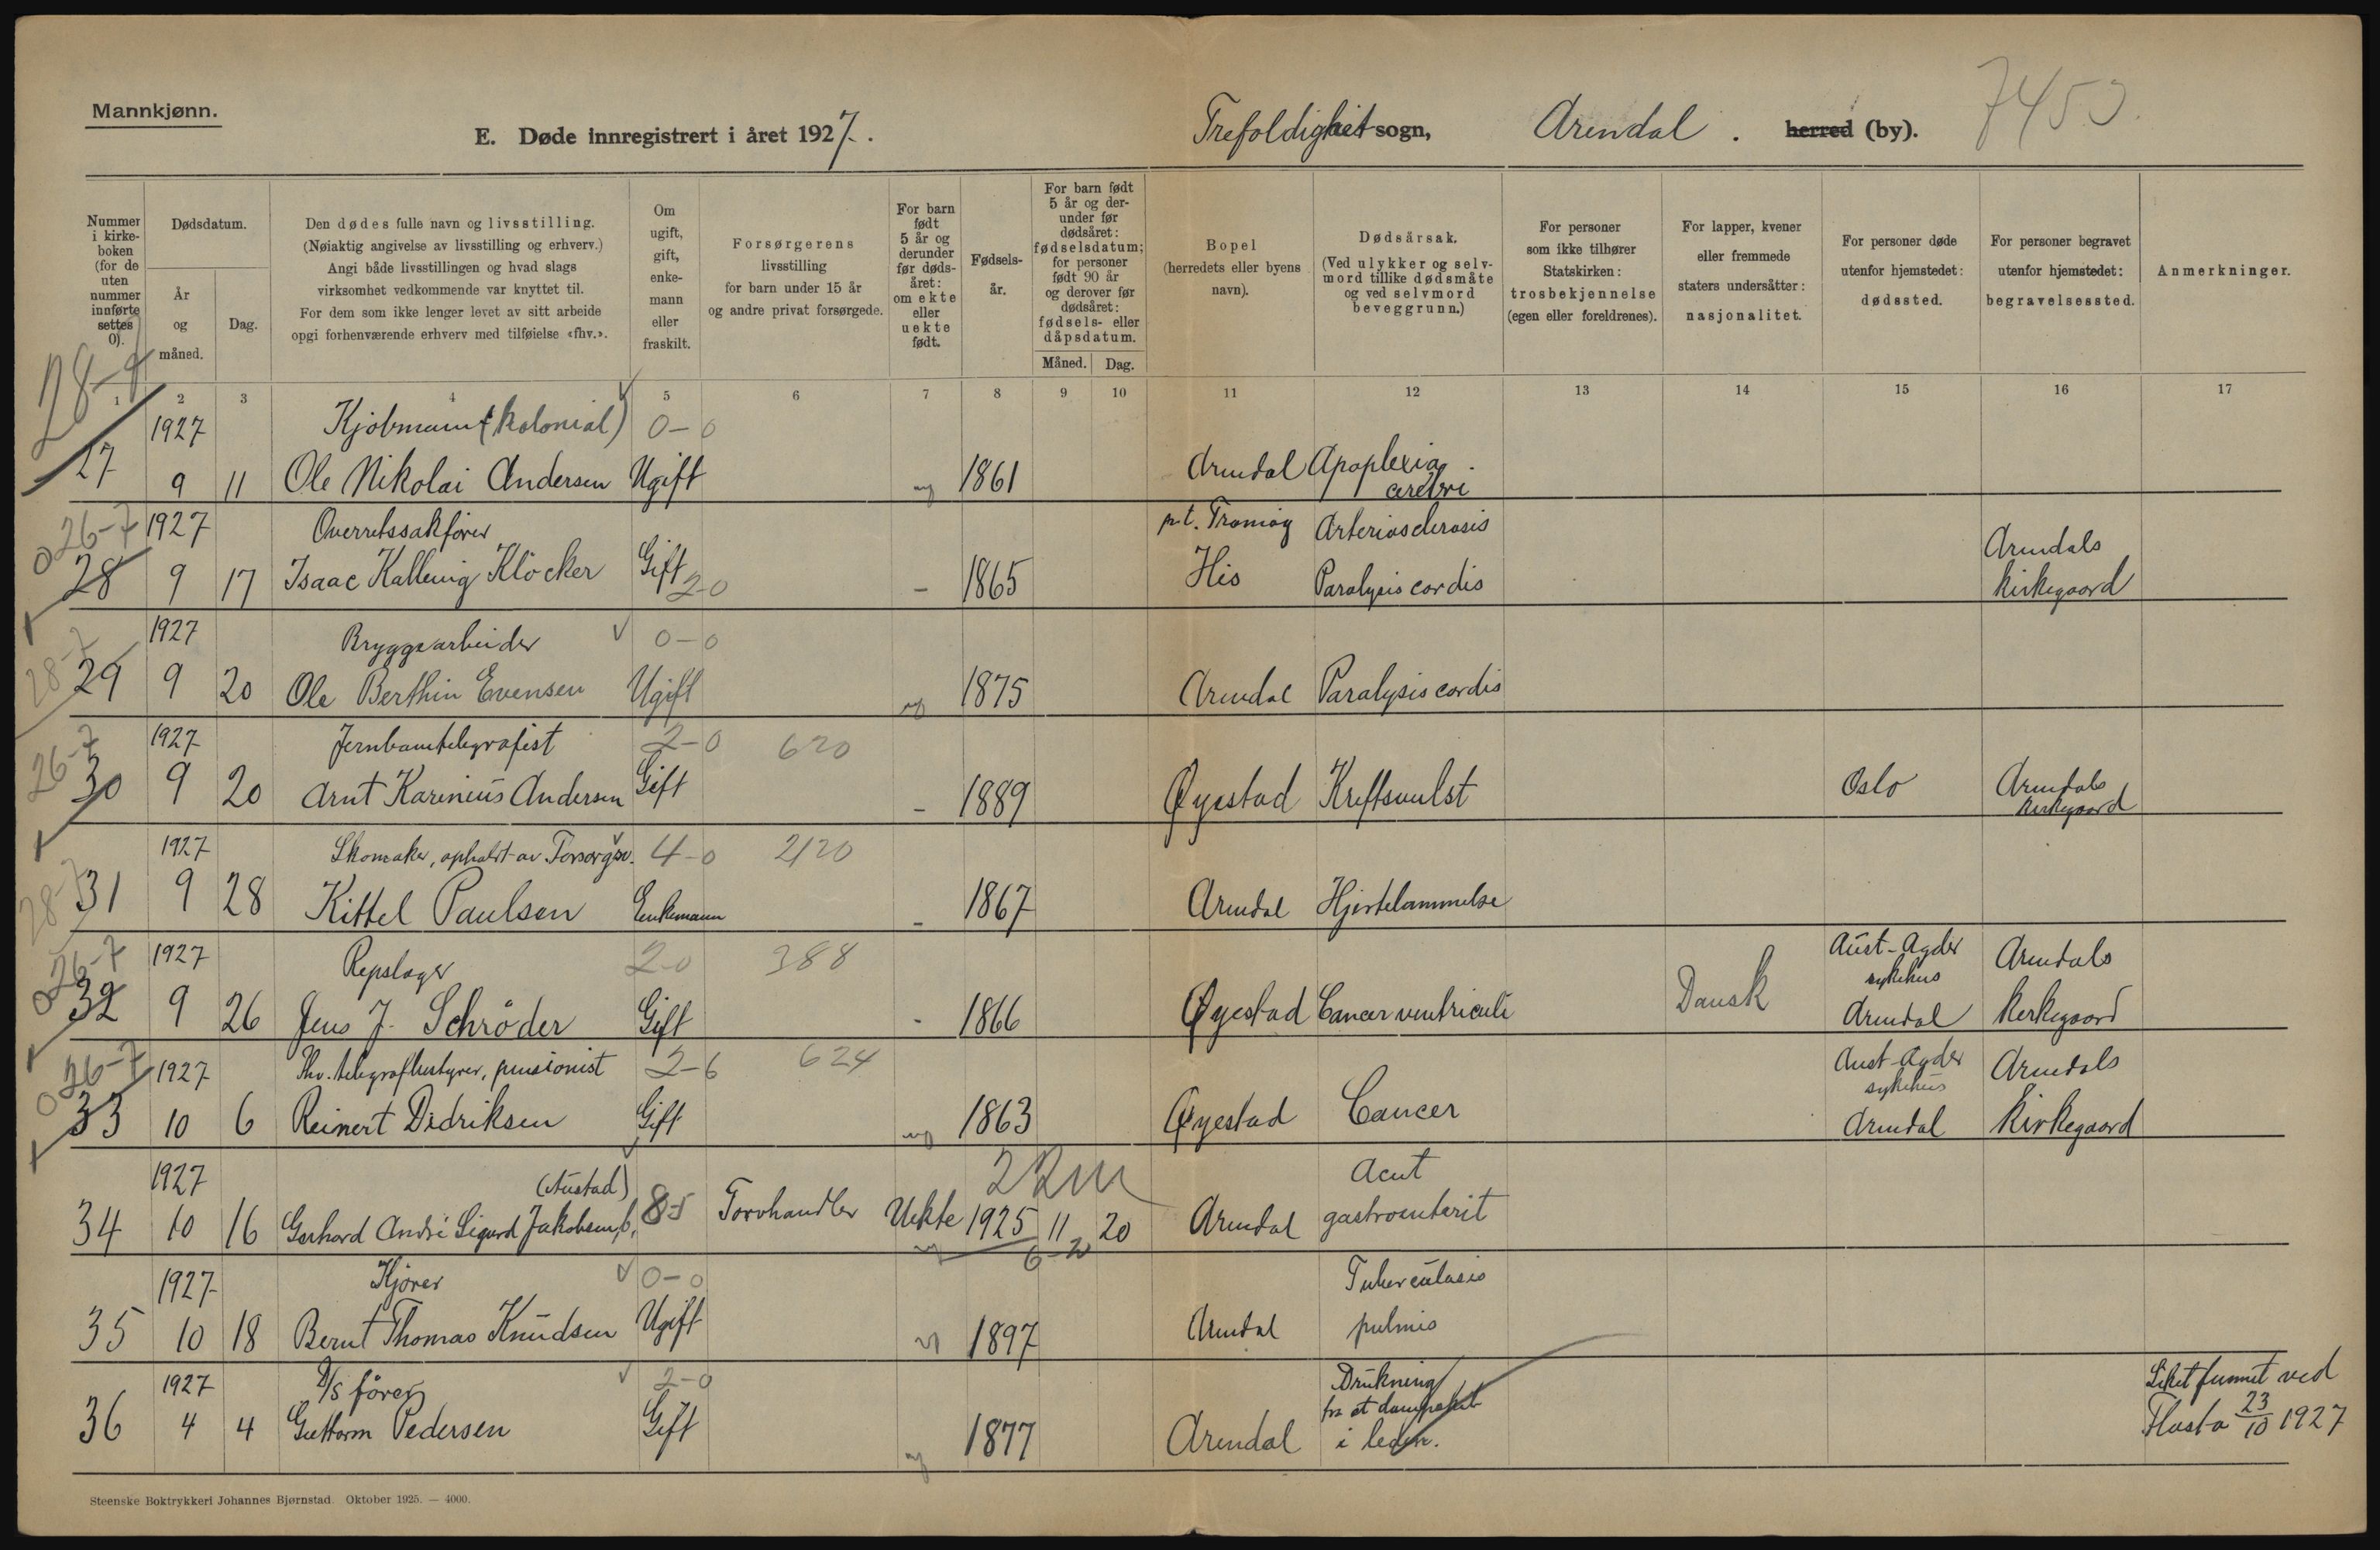 Mannkjønn.
E. Døde innregistrert i året 1927.
Trefoldighet sogn, Arendal. herred (by).
7453.
Nummer i kirkeboken (for de uten nummer innførte settes 0).
Dødsdatum.
År og måned.
Dag.
Den dødes fulle navn og livsstilling.
(Nøiaktig angivelse av livsstilling og erhverv.)
Angi både livsstillingen og hvad slags
virksomhet vedkommende var knyttet til.
For dem som ikke lenger levet av sitt arbeide
opgi forhenværende erhverv med tilføielse «fhv.».
Om ugift, gift, enkemann eller fraskilt.
Forsørgerens
livsstilling
for barn under 15 år
og andre privat forsørgede.
For barn født 5 år og derunder før dødsåret: om ekte eller uekte født.
Fødselsår.
For barn født 5 år og derunder før dødsåret: fødselsdatum; for personer født 90 år og derover før dødsåret: fødsels- eller dåpsdatum.
Måned. Dag.
Bopel
(herredets eller byens
navn).
Dødsårsak.
(Ved ulykker og selvmord tillike dødsmåte og ved selvmord beveggrunn.)
For personer
som ikke tilhører
Statskirken:
trosbekjennelse
(egen eller foreldrenes).
For lapper, kvener
eller fremmede
staters undersåtter:
nasjonalitet.
For personer døde
utenfor hjemstedet:
dødssted.
For personer begravet
utenfor hjemstedet:
begravelsessted.
Anmerkninger.
1 2 3 4 5 6 7 8 9 10 11 12 13 14 15 16 17
1927 Kjøbmann (kolonial) 0-0
27 9 11 Ole Nikolai Andersen Ugift 1861 Arendal Apoplexia cerebri
26-7 1927 Overretssakfører p.t. Tromøy Arteriosclerosis Arendals
28 9 17 Isaac Kallevig Klöcker Gift 2-0 - 1865 His Paralysis cordis kirkegaard
28-7 1927 Bryggearbeider 0-0
29 9 20 Ole Berthin Evensen Ugift 1875 Arendal Paralysis cordis
26-7 1927 Jernbanetelegrafist 2-0 620
30 9 20 Arnt Karinius Andersen Gift - 1889 Øyestad Kreftsvulst Oslo Arendals kirkegaard
28-7 1927 Skomaker, opholdt av Forsorgsv. 4-0 2120
31 9 28 Kittel Paulsen Enkemann - 1867 Arendal Hjertelammelse
26-7 1927 Repslager 2-0 388 Aust-Agder sykehus Arendals
32 9 26 Jens J. Schrøder Gift - 1866 Øyestad Cancer ventriculi Dansk Arendal kirkegaard
26-7 1927 Fhv. telegrafbestyrer, pensionist 2-6 624 Aust-Agder sykehus Arendals
33 10 6 Reinert Didriksen Gift 1863 Øyestad Cancer Arendal kirkegaard
1927 (Austad) Acut
34 10 16 Gerhard André Sigurd Jakobsen 8-5 Torvhandler Uekte 1925 11 20 Arendal gastroenterit
1927 Kjører 0-0 Tuberculosis
35 10 18 Bernt Thomas Knudsen Ugift 1897 Arendal pulmis
1927 D/S fører 2-0 Drukning Liket funnet ved
36 4 4 Guttorm Pedersen Gift 1877 Arendal fra et i leden. Flosta 23/10 1927
Steenske Boktrykkeri Johannes Bjørnstad. Oktober 1925. — 4000.